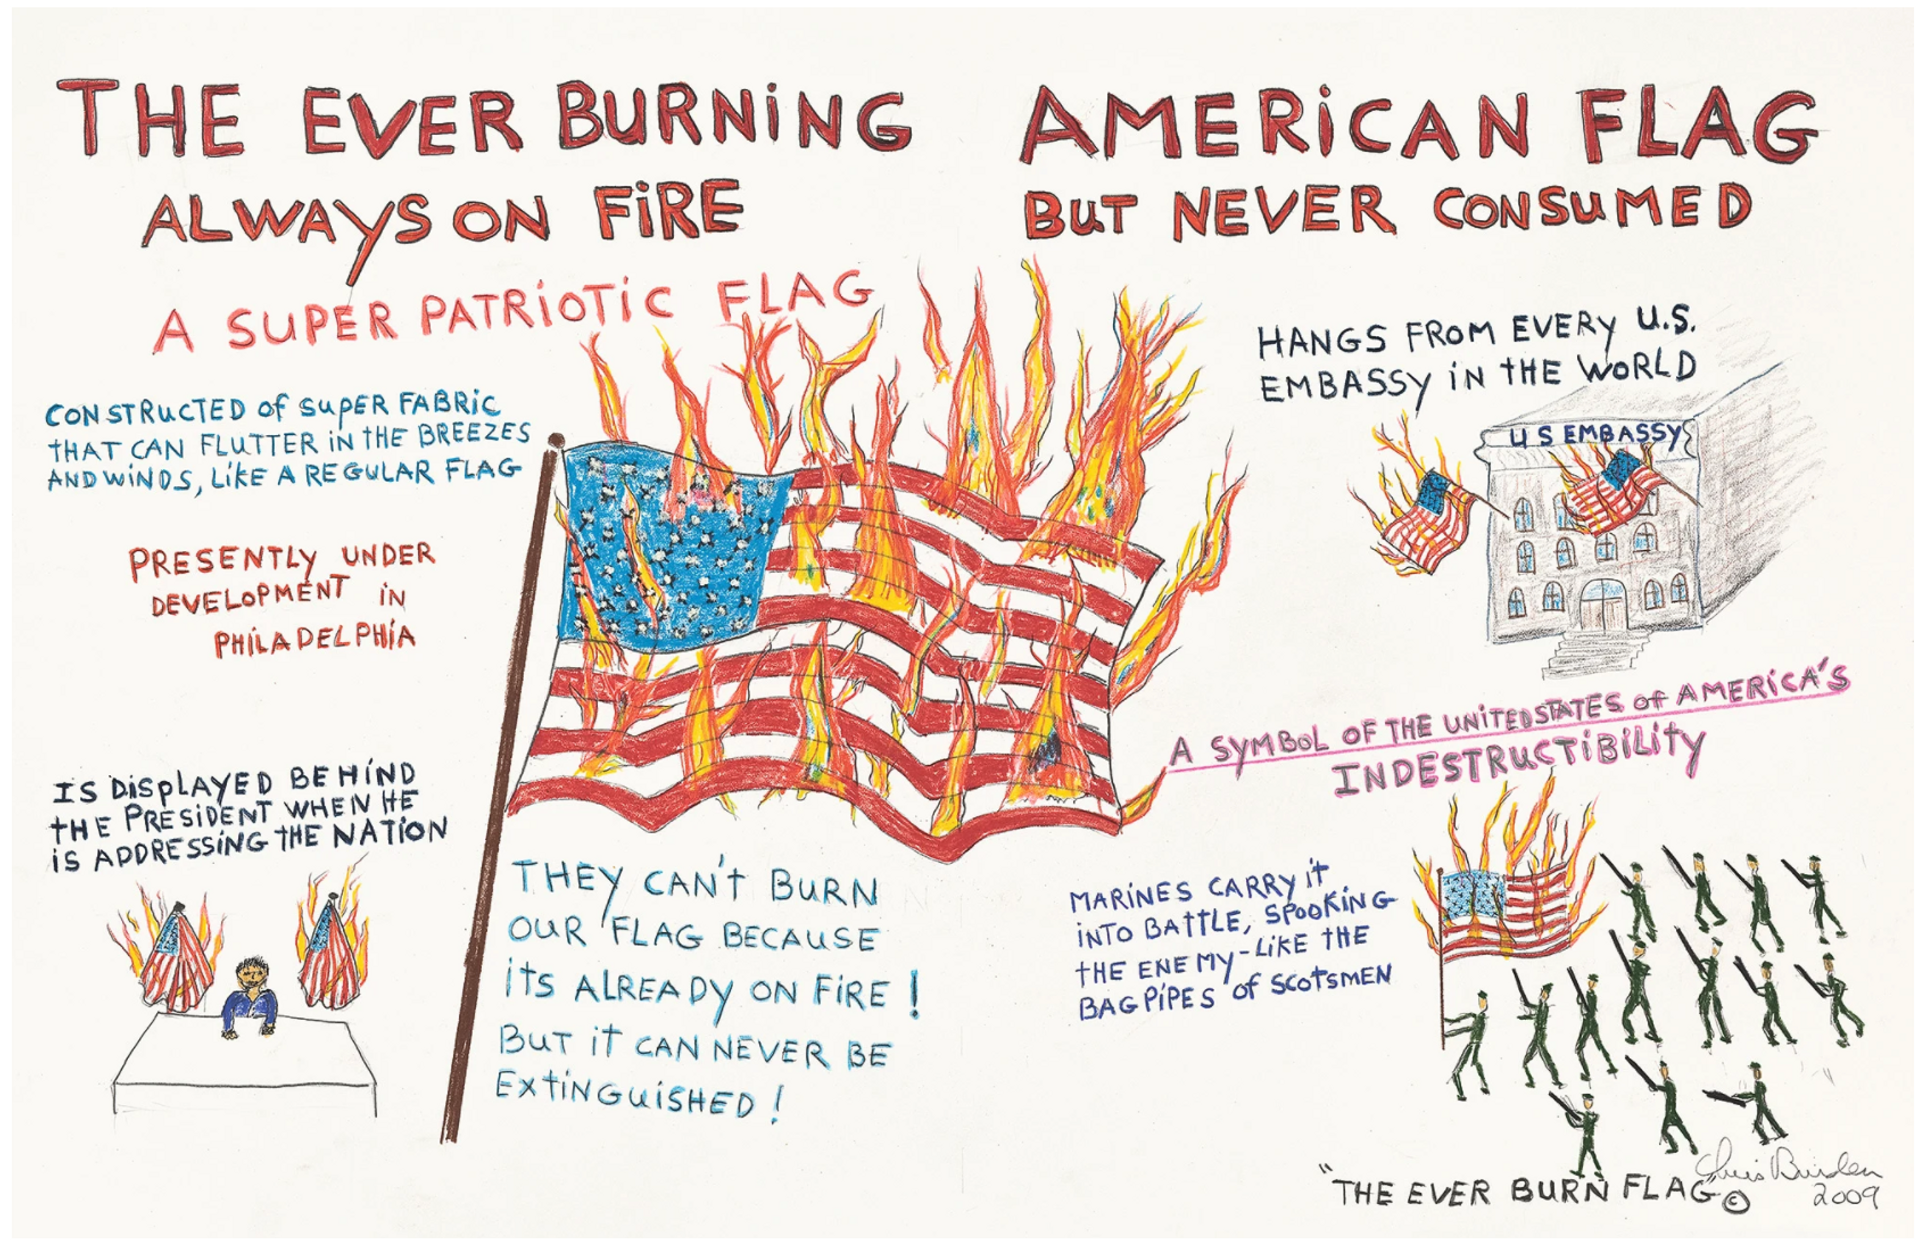 THE EVER BURNING AMERICAN FLAG
ALWAYS ON FIRE BUT NEVER CONSUMED
A SUPER PATRIOTIC FLAG
CONSTRUCTED of SUPER FABRIC
THAT CAN FLUTTER IN THE BREEZES
AND WINDS, LIKE A REGULAR FLAG
PRESENTLY UNDER
DEVELOPMENT IN
PHILADELPHIA
IS DISPLAYED BEHIND
THE PRESIDENT WHEN HE
IS ADDRESSING THE NATION
THEY CAN'T BURN
OUR FLAG BECAUSE
ITS ALREADY ON FIRE!
BUT IT CAN NEVER BE
EXTINGUISHED!
HANGS FROM EVERY U.S.
EMBASSY IN THE WORLD
U S EMBASSY
A SYMBOL OF THE UNITED STATES of AMERICA'S
INDESTRUCTIBILITY
MARINES CARRY IT
INTO BATTLE, SPOOKING
THE ENEMY-LIKE THE
BAGPIPES of SCOTSMEN
Chris Burden
"THE EVER BURN FLAG" ©
2009